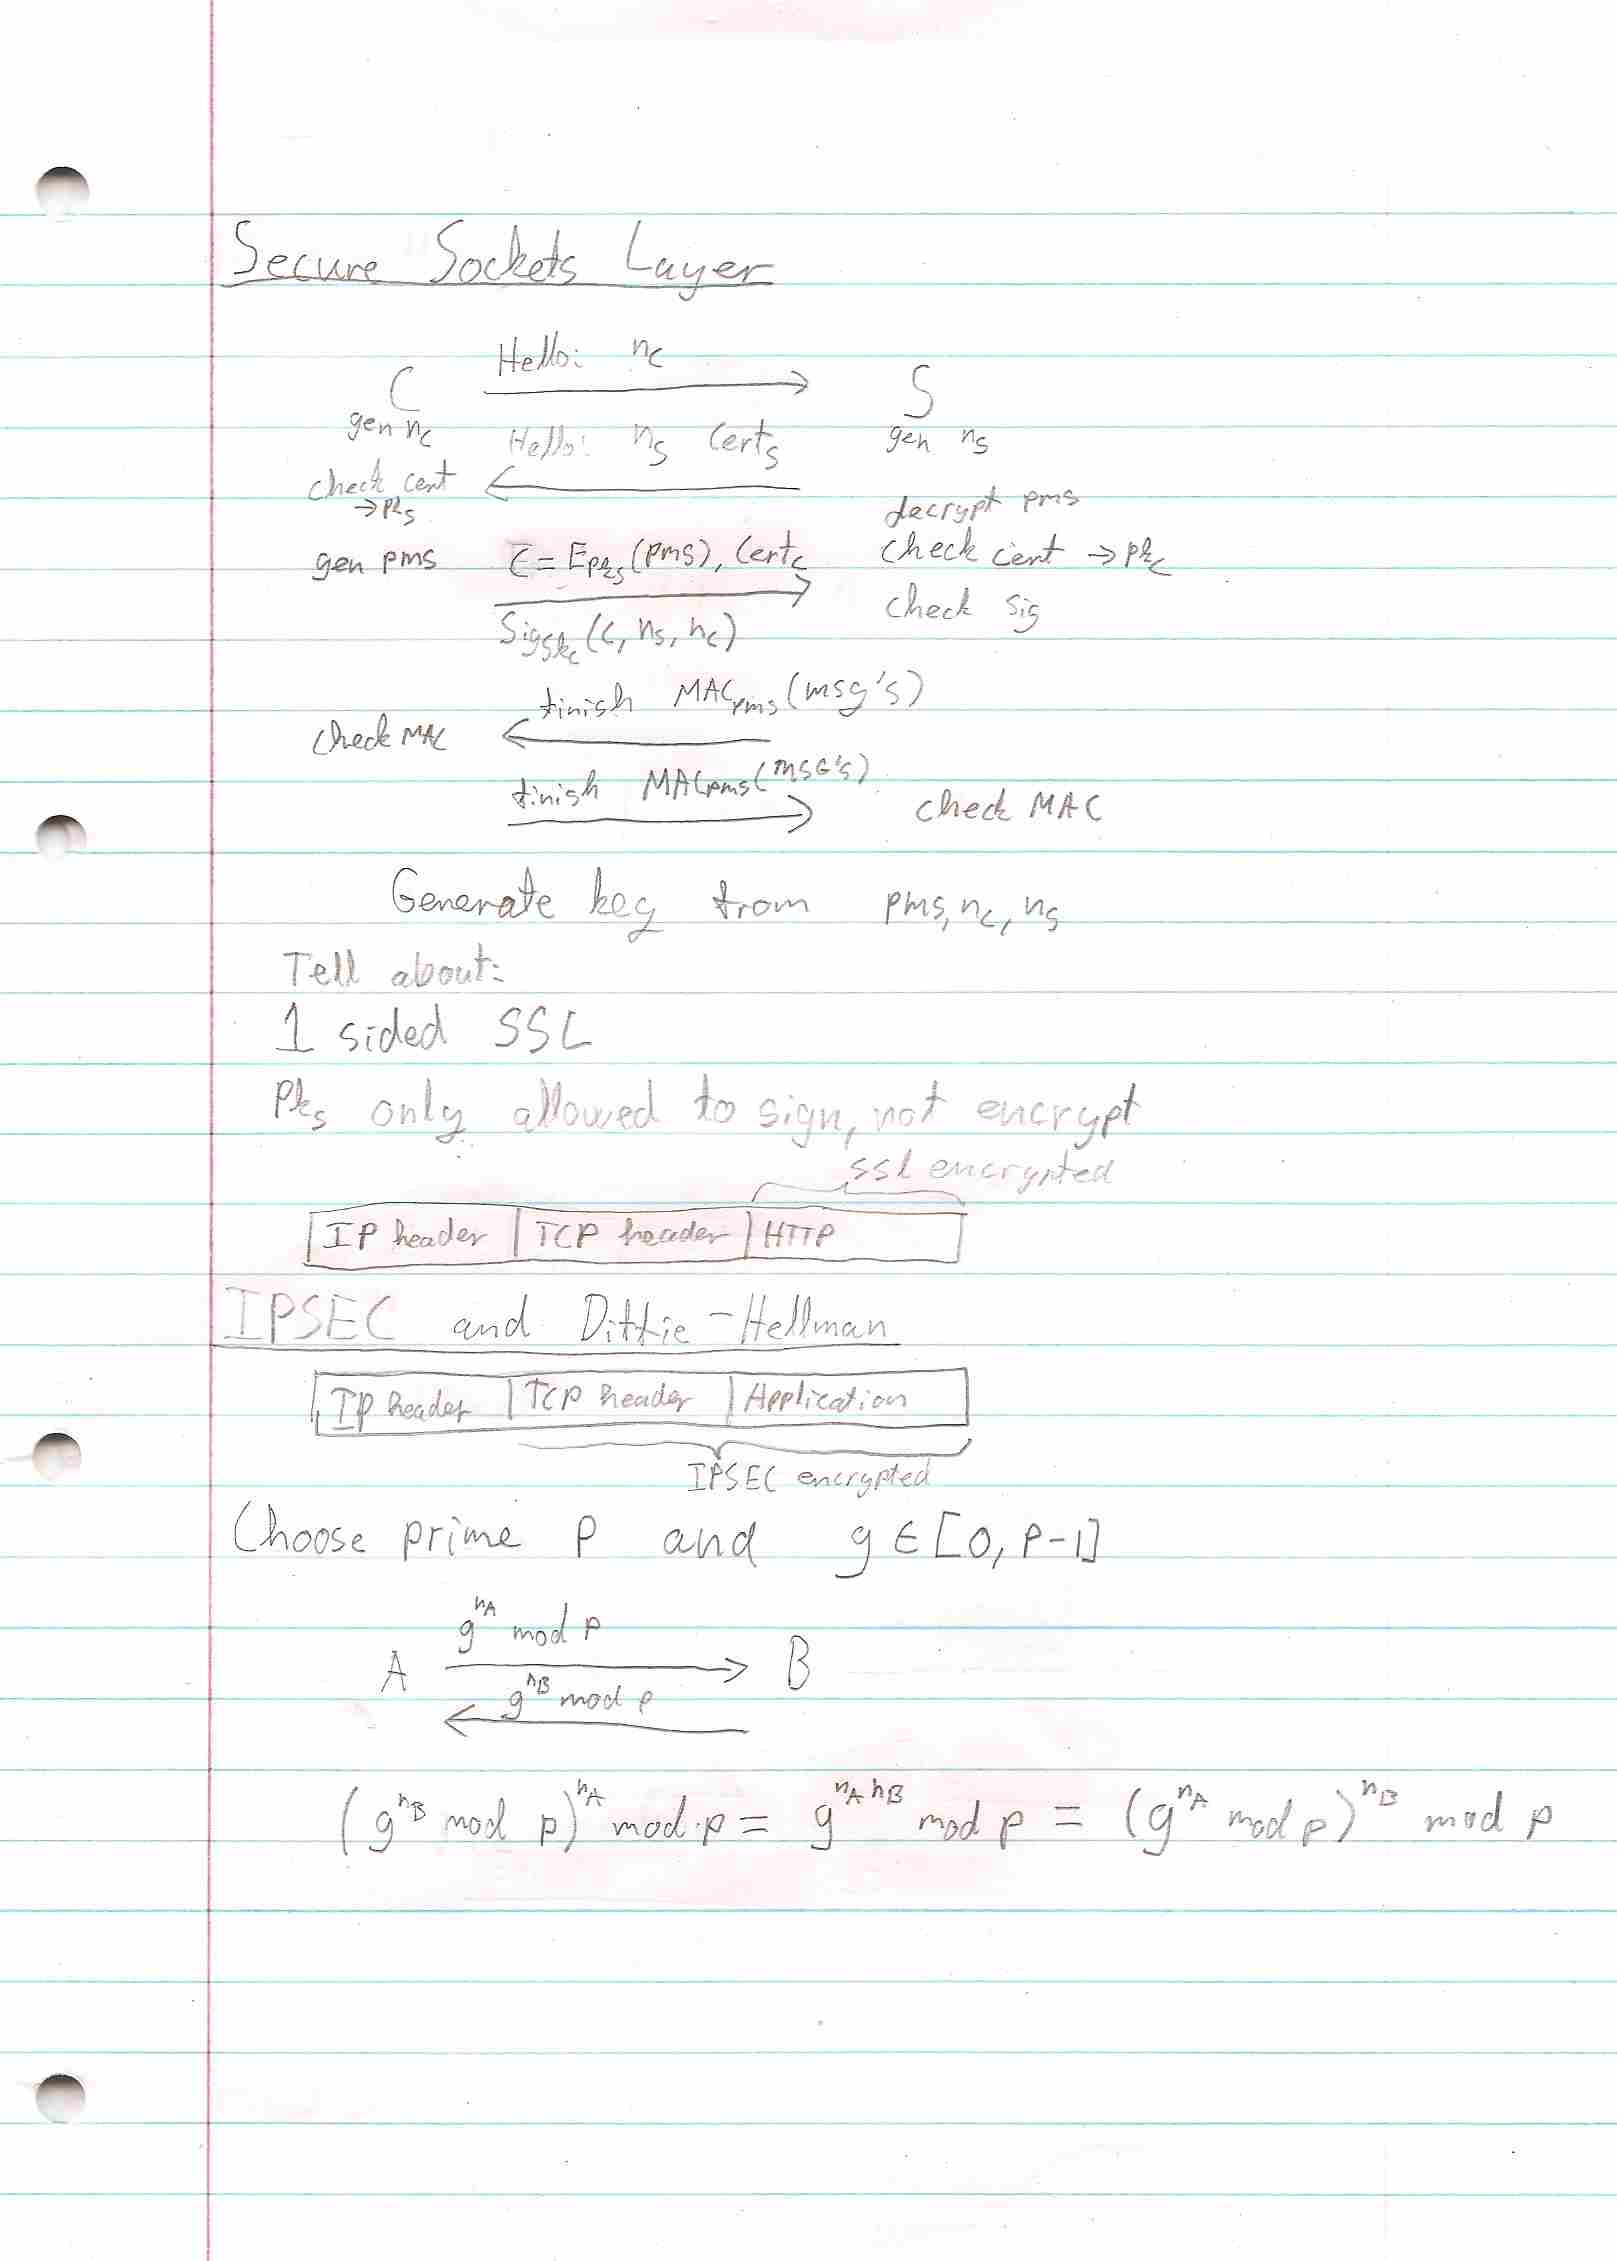 Secure Sockets Layer
Hello: nc
C S
gen nc Hello: ns Certs gen ns
check cert
→pks
decrypt pms
gen pms C = Epks(pms), Certc check cert → pkc
check sig
Sigskc(c, ns, nc)
finish MACpms(msg's)
check MAC
finish MACpms(msg's)
check MAC
Generate key from pms, nc, ns
Tell about:
1 sided SSL
Pks only allowed to sign, not encrypt
ssl encrypted
IP header | TCP header | HTTP
IPSEC and Diffie-Hellman
IP header | TCP header | Application
IPSEC encrypted
Choose prime p and g ∈ [0, p-1]
g^nA mod p
A B
g^nB mod p
(g^nB mod p)^nA mod p = g^nA nB mod p = (g^nA mod p)^nB mod p